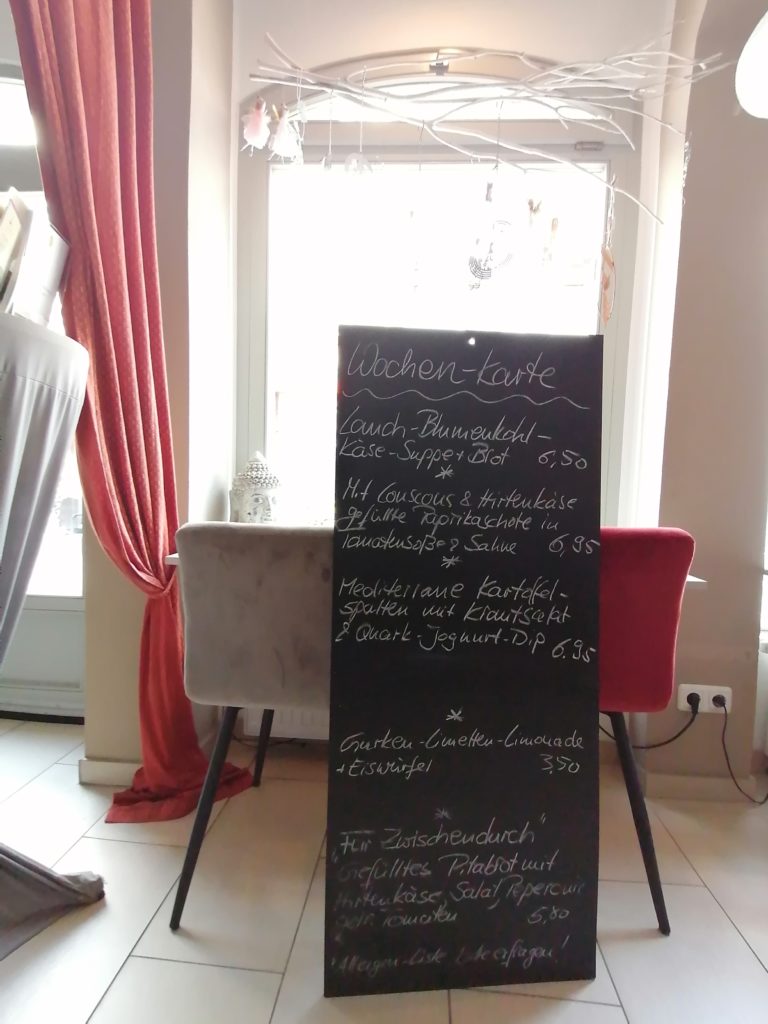 Wochen-Karte
Lauch-Blumenkohl-
Käse-Suppe + Brot 6,50
*
Mit Couscous & Hirtenkäse
gefüllte Paprikaschote in
Tomatensoße & Sahne 6,95
*
Mediterrane Kartoffel-
spalten mit Krautsalat
& Quark-Joghurt-Dip 6.95
*
Gurken-Limetten-Limonade
+ Eiswürfel 3,50
*
"Für Zwischendurch"
Gefülltes Pitabrot mit
Hirtenkäse, Salat, Peperoni
getr. Tomaten 5,80
*Allergen-Liste bitte erfragen!